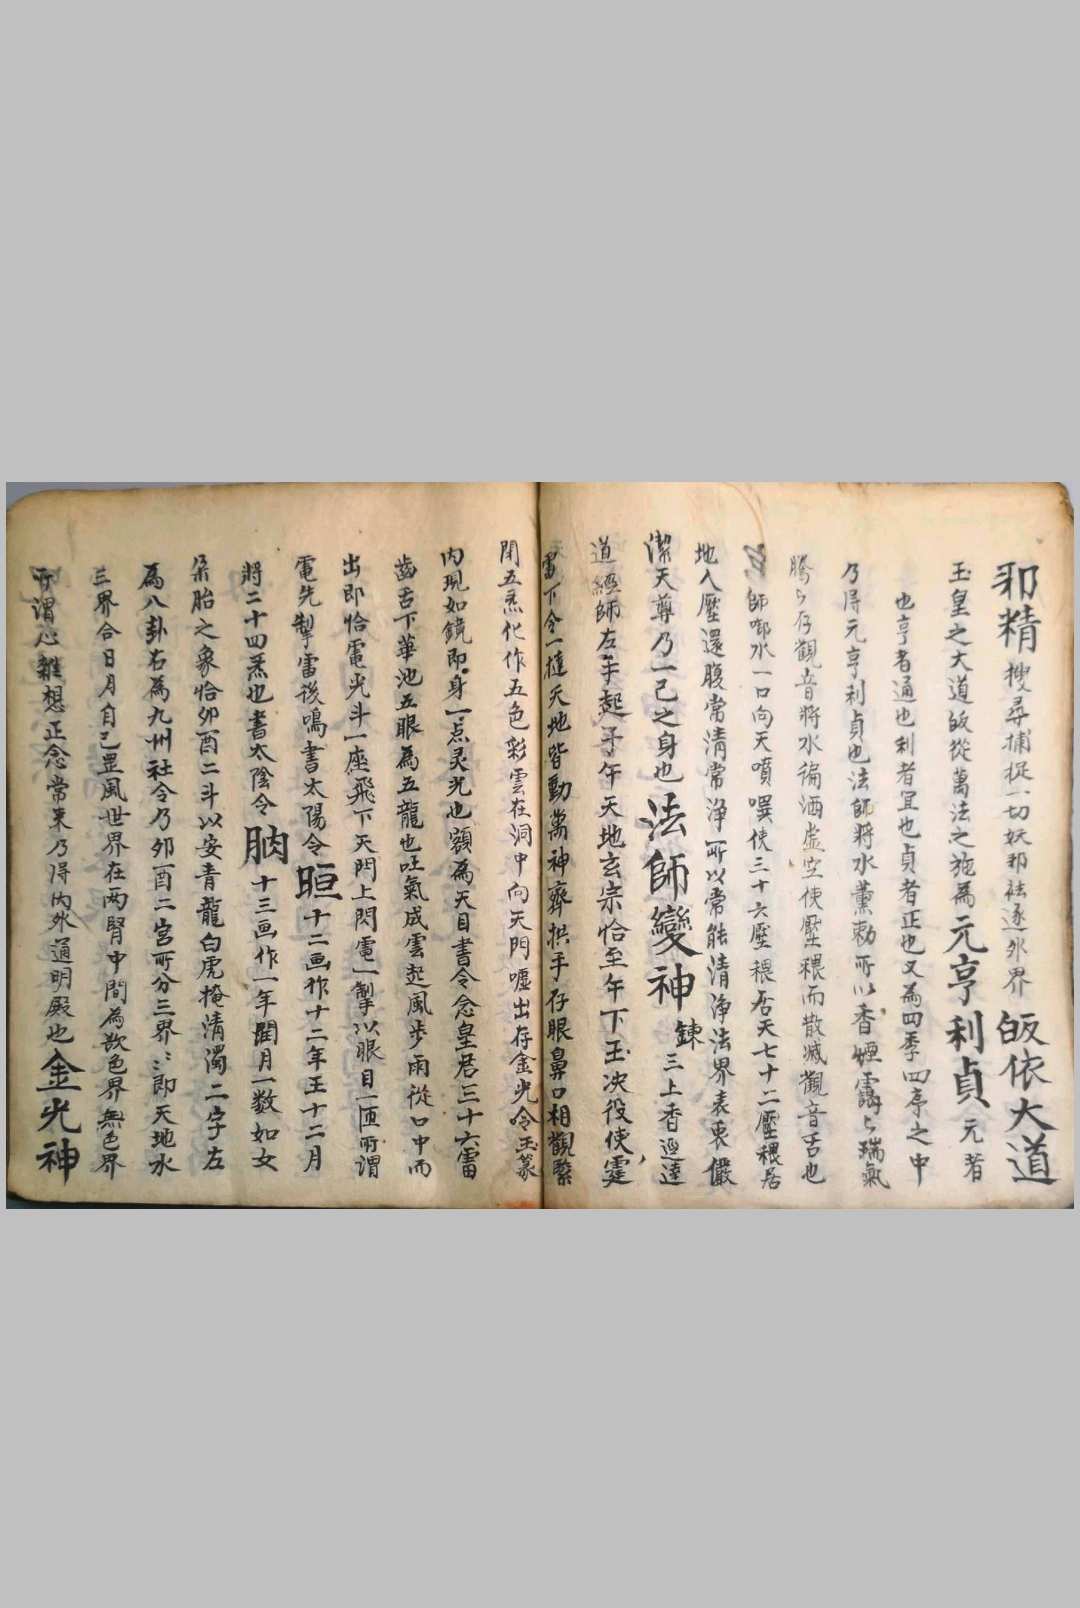 邪精搜尋捕捉一切妖邪祛逐外界皈依大道
玉皇之大道皈從萬法之施為元亨利貞元者
也亨者通也利者宜也貞者正也又為四季四序之中
乃得元亨利貞也法師將水薰勅所以香煙靄々瑞氣
騰々存觀音將水徧洒虛空使壓穢而散滅觀音舌也
師啣水一口向天噴噀使三十六壓穢居天七十二壓穢居
地入壓還腹常清常淨所以常能清淨法界表衷儼
潔天尊乃一己之身也法師變神鍊三上香迎達
道經師左手起子午天地玄宗恰至午下玉決役使霆
雷下令一撻天地皆動萬神齊拱手存眼鼻口相觀緊
閉五炁化作五色彩雲在洞中向天門噓出存金光令玉篆
內現如鏡即身一点灵光也額為天目書令念皇君三十六雷
齒舌下華池五眼為五龍也吐氣成雲起風步雨從口中而
出即恰電光斗一座飛下天門上閃電一掣以眼目一匝所謂
電先掣雷後鳴書太陽令晅十二画作十二年王十二月
將二十四炁也書太陰令朒十三画作一年閏月一数如女
朵胎之象恰夘酉二斗以安青龍白虎掩清濁二字左
為八卦右為九州社令乃夘酉二宮所分三界々即天地水
三界合日月自己罡風世界在两腎中間為欲色界無色界
所謂心雜想正念常来乃得内外通明殿也金光神